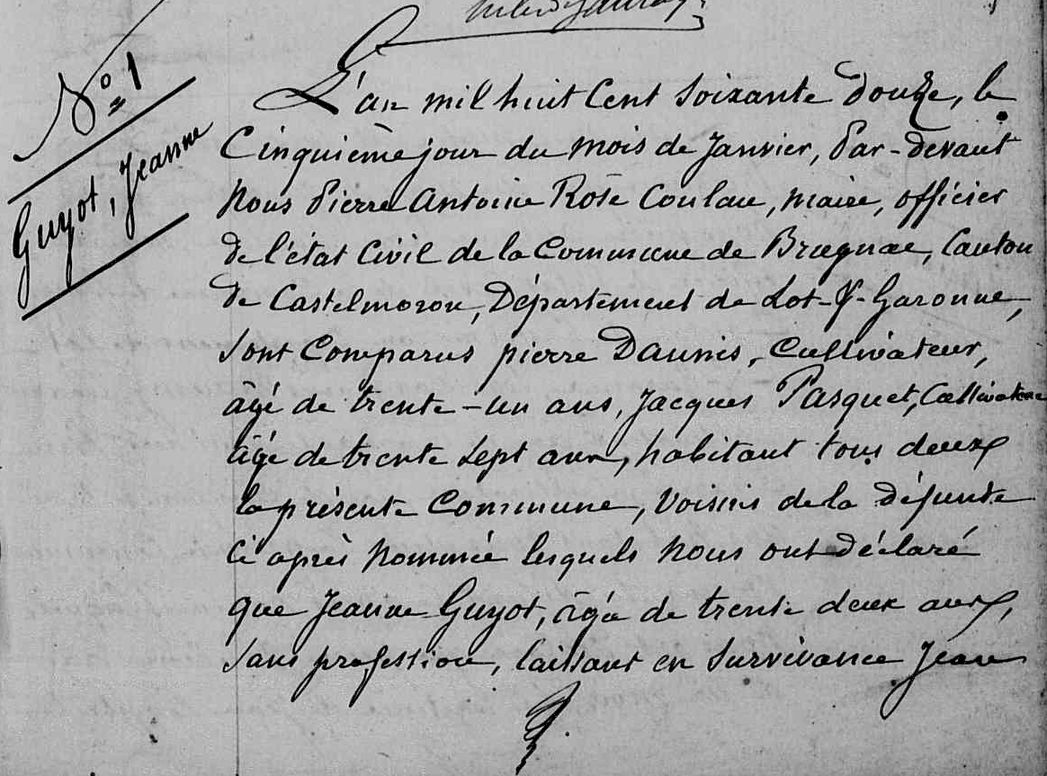 N° 1
Guyot, Jeanne
L'an mil huit Cent soixante douze, le
Cinquième jour du mois de Janvier, Par-devant
Nous Pierre Antoine Rose Coulau, maire, officier
de l'état Civil de la Commune de Brugnac, Canton
de Castelmoron, Département de Lot-&-Garonne,
sont Comparus pierre Daunis, Cultivateur,
âgé de trente-un ans, Jacques Pasquet, Cultivateur
âgé de trente sept ans, habitant tous deux
la présente Commune, voisins de la défunte
Ci après Nommée lesquels Nous ont déclaré
que Jeanne Guyot, âgée de trente deux ans,
sans profession, laissant en survivance Jean